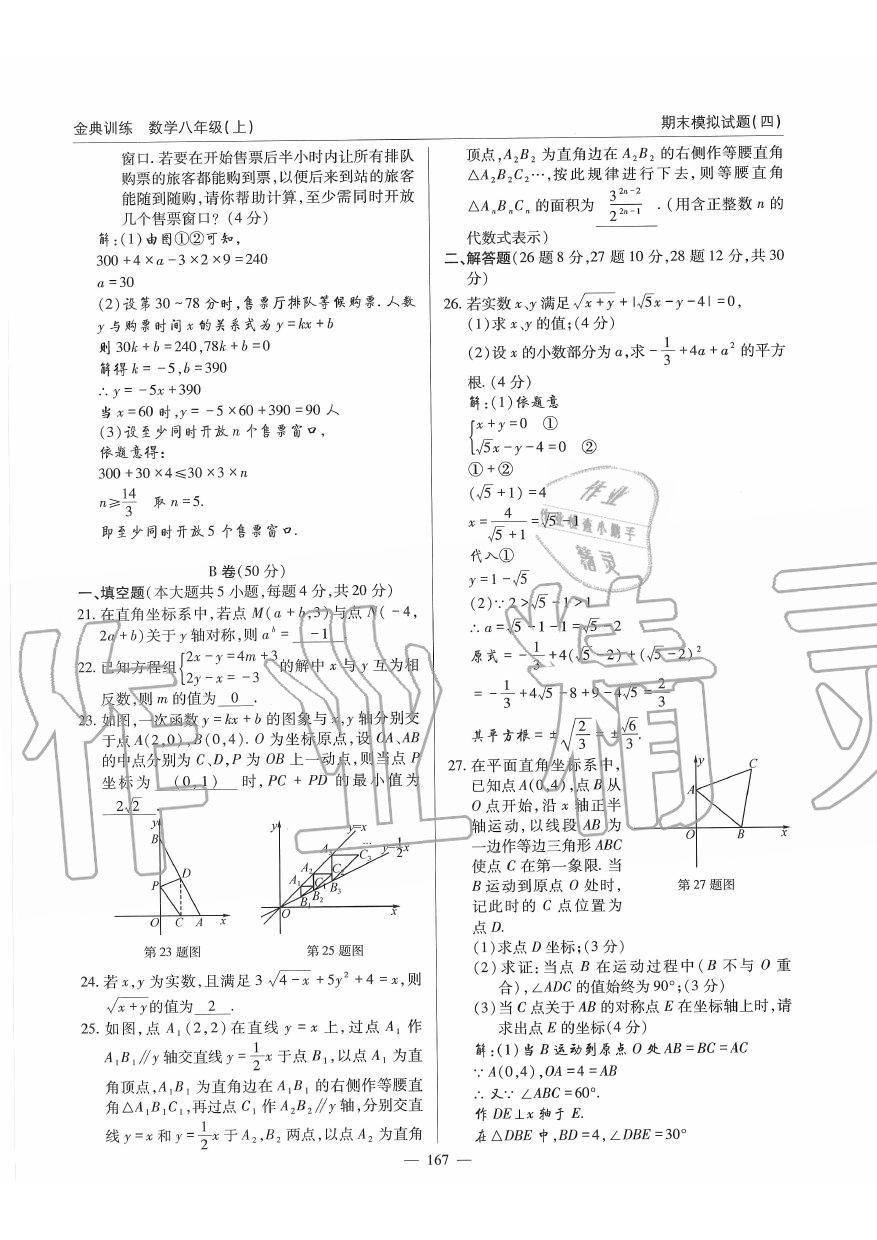 金典训练 数学八年级(上)
期末模拟试题(四)
窗口.若要在开始售票后半小时内让所有排队
购票的旅客都能购到票,以便后来到站的旅客
能随到随购,请你帮助计算,至少需同时开放
几个售票窗口?(4分)
解:(1)由图①②可知,
300+4×a-3×2×9=240
a=30
(2)设第30~78分时,售票厅排队等候购票.人数
y与购票时间x的关系式为y=kx+b
则30k+b=240,78k+b=0
解得k=-5,b=390
∴y=-5x+390
当x=60时,y=-5×60+390=90人
(3)设至少同时开放n个售票窗口,
依题意得:
300+30×4≤30×3×n
n≥14/3 取n=5.
即至少同时开放5个售票窗口.
B卷(50分)
一、填空题(本大题共5小题,每题4分,共20分)
21.在直角坐标系中,若点M(a+b,3)与点N(-4,
2a+b)关于y轴对称,则a^b= -1
22.已知方程组{2x-y=4m+3 2y-x=-3 的解中x与y互为相
反数,则m的值为 0 .
23.如图,一次函数y=kx+b的图象与x,y轴分别交
于点A(2,0),B(0,4).O为坐标原点,设OA、AB
的中点分别为C、D,P为OB上一动点,则当点P
坐标为 (0,1) 时,PC+PD的最小值为
2√2 .
y B D P O C A x
第23题图
y y=x A₃ … C₃ y=1/2x A₂ C₂ A₁ C₁ B₃ B₂ B₁ O x
第25题图
24.若x,y为实数,且满足3√(4-x)+5y²+4=x,则
√(x+y)的值为 2 .
25.如图,点A₁(2,2)在直线y=x上,过点A₁作
A₁B₁∥y轴交直线y=1/2x于点B₁,以点A₁为直
角顶点,A₁B₁为直角边在A₁B₁的右侧作等腰直
角△A₁B₁C₁,再过点C₁作A₂B₂∥y轴,分别交直
线y=x和y=1/2x于A₂,B₂两点,以点A₂为直角
顶点,A₂B₂为直角边在A₂B₂的右侧作等腰直角
△A₂B₂C₂…,按此规律进行下去,则等腰直角
△AₙBₙCₙ的面积为 3^(2n-2)/2^(2n-1) .(用含正整数n的
代数式表示)
二、解答题(26题8分,27题10分,28题12分,共30
分)
26.若实数x、y满足√(x+y)+|√5x-y-4|=0,
(1)求x、y的值;(4分)
(2)设x的小数部分为a,求-1/3+4a+a²的平方
根.(4分)
解:(1)依题意
{x+y=0 ①
√5x-y-4=0 ②
①+②
(√5+1)=4
x=4/(√5+1)=√5-1
代入①
y=1-√5
(2)∵2>√5-1>1
∴a=√5-1-1=√5-2
原式=-1/3+4(√5-2)+(√5-2)²
=-1/3+4√5-8+9-4√5=2/3
其平方根=±√(2/3)=±√6/3.
27.在平面直角坐标系中,
已知点A(0,4),点B从
O点开始,沿x轴正半
轴运动,以线段AB为
一边作等边三角形ABC
使点C在第一象限.当
B运动到原点O处时,
记此时的C点位置为
点D.
y C A O B x
第27题图
(1)求点D坐标;(3分)
(2)求证:当点B在运动过程中(B不与O重
合),∠ADC的值始终为90°;(3分)
(3)当C点关于AB的对称点E在坐标轴上时,请
求出点E的坐标(4分)
解:(1)当B运动到原点O处AB=BC=AC
∵A(0,4),OA=4=AB
∴又∵∠ABC=60°.
作DE⊥x轴于E.
在△DBE中,BD=4,∠DBE=30°
— 167 —
作业精灵
作业
作业检查小助手
精灵